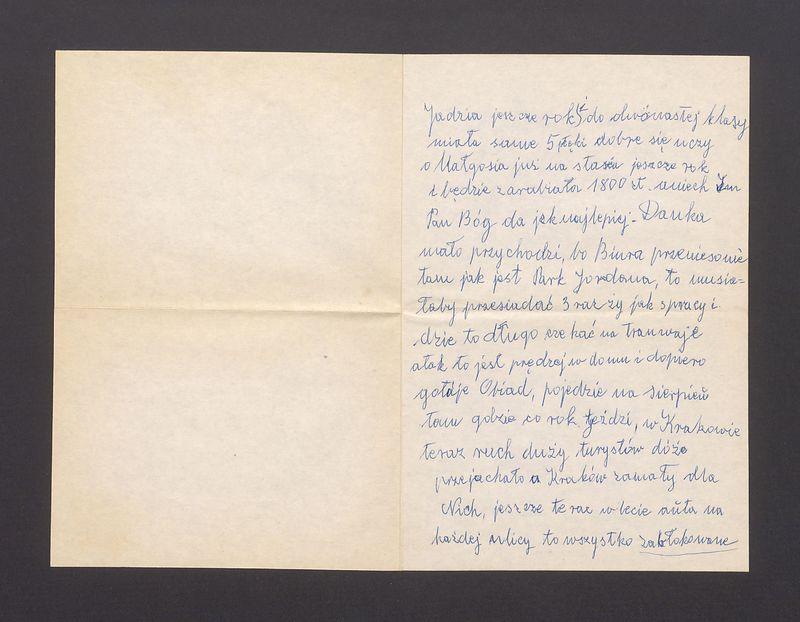 Jadzia jeszcze rok i do dwónastej klasy
miała same 5 piątki dobre się uczy
a Małgosia już na staża jeszcze rok
i będzie zarabiała 1800 zł. aniech Im
Pan Bóg da jaknajlepiej - Danka
mało przychodzi, bo Biura przeniesonie
tam jak jest Park Jordana, to musia=
łaby przesiadać 3 raz ży jak spracy i
dzie to długo cze kać na tramwaje
atak to jest prędzej w domu i dopiero
gotuje Obiad, pojedzie na Sierpień
tam gdzie co rok jeździ, w Krakowie
teraz ruch duży turystów dóże
przejachało a Kraków zamały dla
Nich, jeszcze te raz w lecie aŭta na
każdej ulicy to wszystko zabłokowane